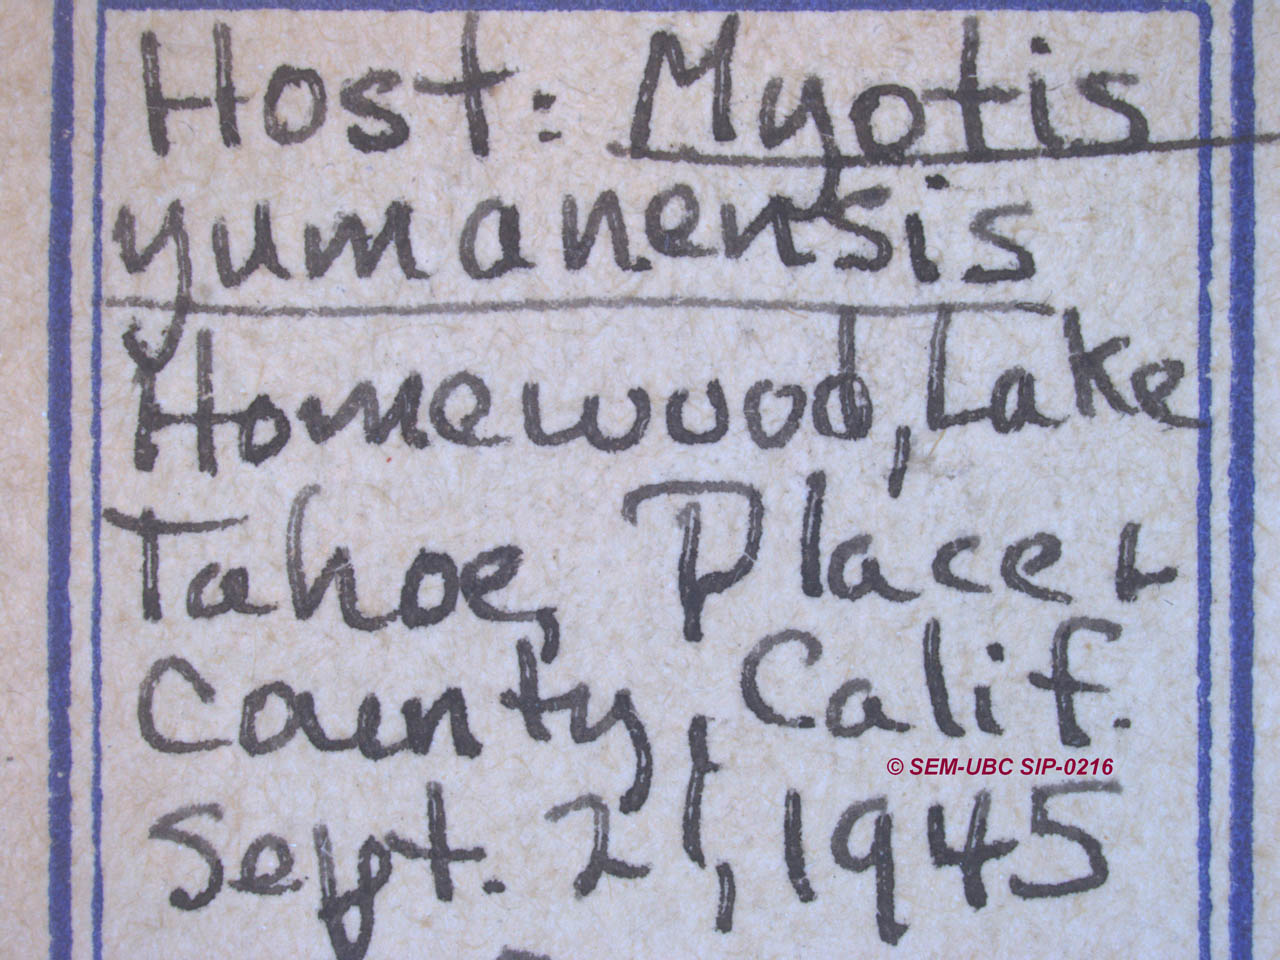 Host: Myotis
yumanensis
Homewood, Lake
Tahoe, Placer
County, Calif.
© SEM-UBC SIP-0216
Sept. 21, 1945